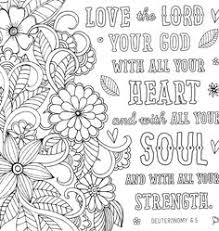 LOVE the LORD
YOUR GOD
WITH ALL YOUR
HEART
and with ALL YOUR
SOUL
AND WITH ALL YOUR
STRENGTH.
DEUTERONOMY 6:5